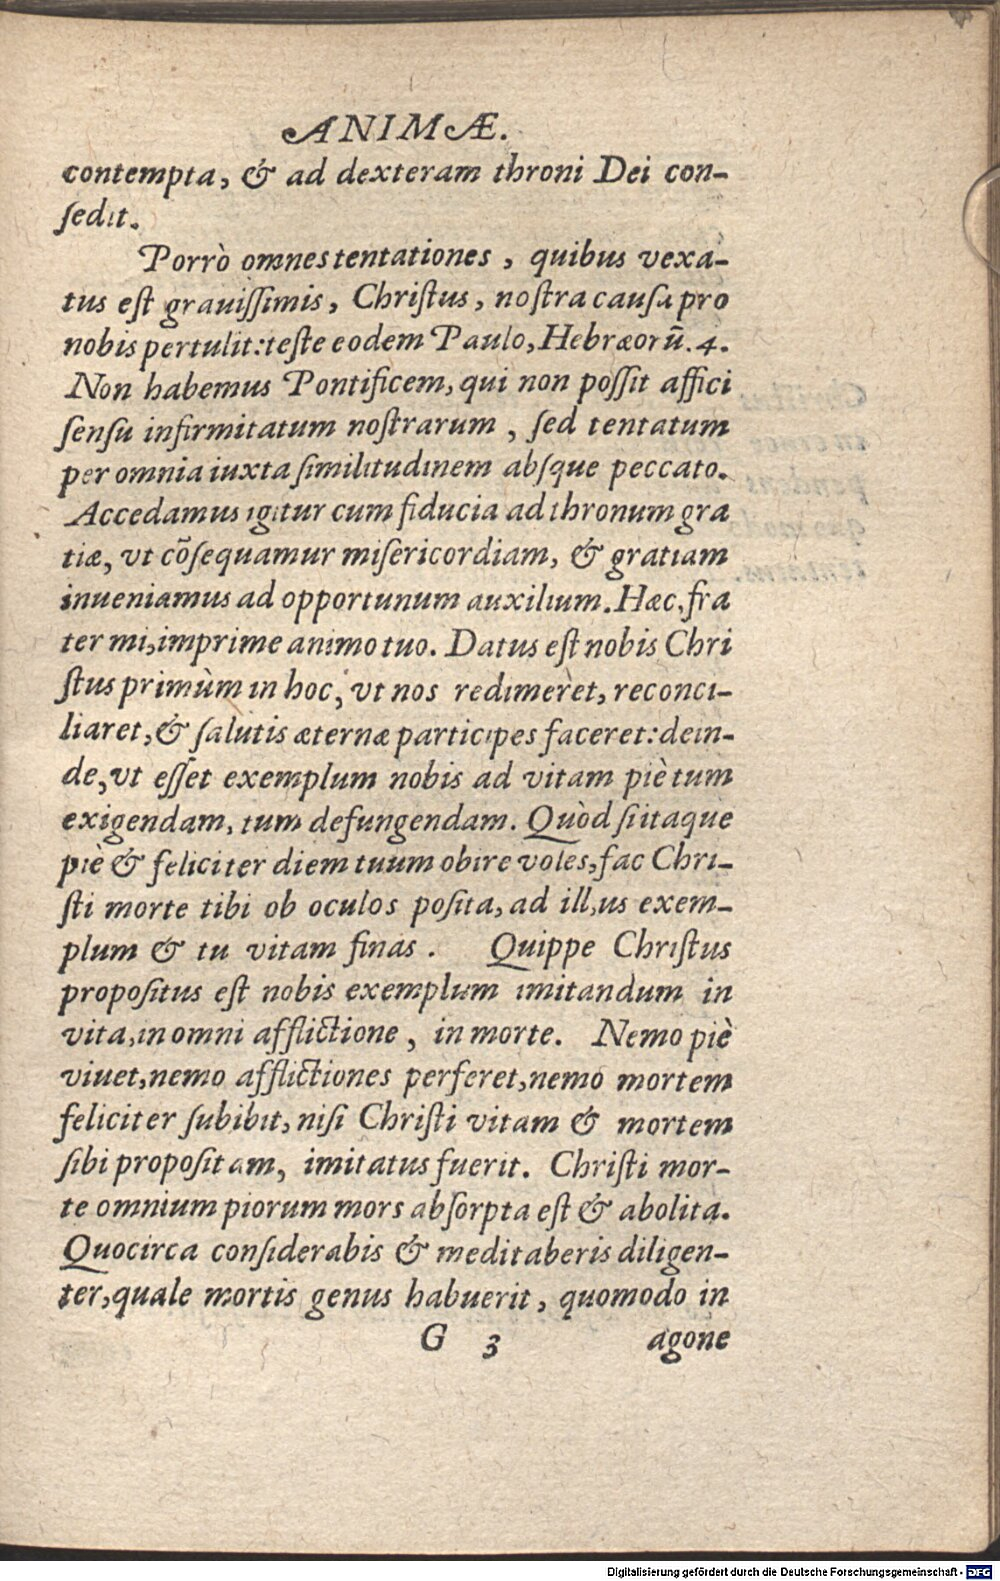 ANIMÆ.
contempta, & ad dexteram throni Dei con-
ſedit.
Porrò omnes tentationes, quibus vexa-
tus eſt grauiſſimis, Chriſtus, noſtra cauſa pro
nobis pertulit: teſte eodem Paulo, Hebræorū. 4.
Non habemus Pontificem, qui non poſſit affici
ſenſu infirmitatum noſtrarum, ſed tentatum
per omnia iuxta ſimilitudinem abſque peccato.
Accedamus igitur cum fiducia ad thronum gra
tiæ, vt cōſequamur miſericordiam, & gratiam
inueniamus ad opportunum auxilium. Hæc, fra
ter mi, imprime animo tuo. Datus eſt nobis Chri
ſtus primùm in hoc, vt nos redimeret, reconci-
liaret, & ſalutis æternæ participes faceret: dein-
de, vt eſſet exemplum nobis ad vitam piè tum
exigendam, tum defungendam. Quòd ſi itaque
piè & feliciter diem tuum obire voles, fac Chri-
ſti morte tibi ob oculos poſita, ad illius exem-
plum & tu vitam finas. Quippe Chriſtus
propoſitus eſt nobis exemplum imitandum in
vita, in omni afflictione, in morte. Nemo piè
viuet, nemo afflictiones perferet, nemo mortem
feliciter ſubibit, niſi Chriſti vitam & mortem
ſibi propoſitam, imitatus fuerit. Chriſti mor-
te omnium piorum mors abſorpta eſt & abolita.
Quocirca conſiderabis & meditaberis diligen-
ter, quale mortis genus habuerit, quomodo in
G 3 agone
Digitalisierung gefördert durch die Deutsche Forschungsgemeinschaft - DFG